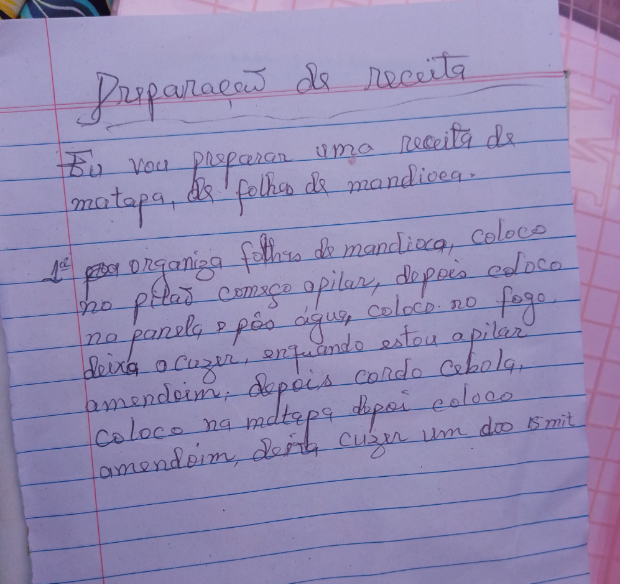 Preparação de receita
Eu vou preparar uma receita de
matapa, de folhas de mandioca.
1º organiza folhas de mandioca, coloco
no pilão começo apilar, depois coloco
na panela, e pôo água, coloco no fogo.
deixa acuzer, enquando estou apilar
amendoim, depois cordo cebola,
coloco na matapa depoi coloco
amendoim, deixa cuzer um doo 15 mit